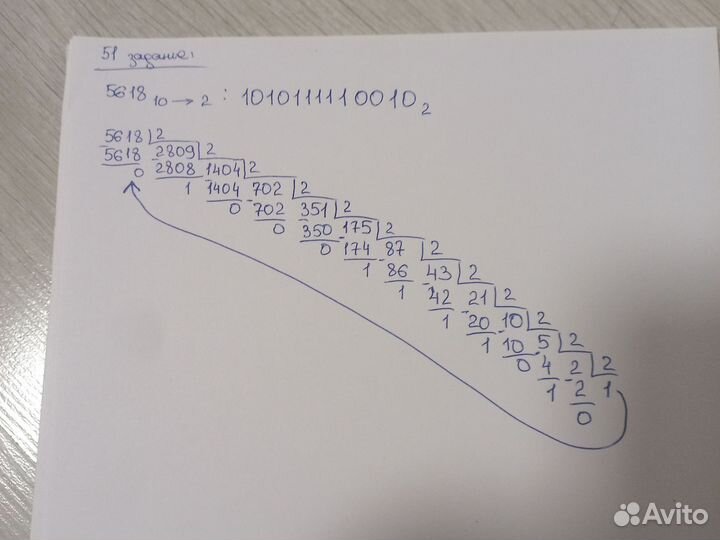 51 задание:
5618 10 → 2 : 1010111110010 2
5618 2
5618 2809 2
0 2808 1404 2
1 1404 702 2
0 702 351 2
0 350 175 2
0 174 87 2
1 86 43 2
1 42 21 2
1 20 10 2
1 10 5 2
0 4 2 2
1 2 1
0
Avito